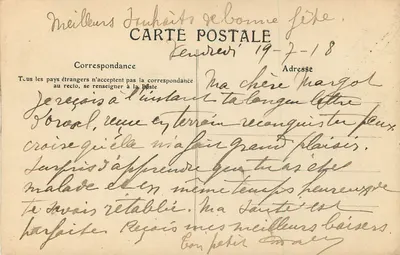 Meilleurs souhaits de bonne fête.
CARTE POSTALE
Vendredi 19-7-18
Correspondance
Adresse
Tous les pays étrangers n'acceptent pas la correspondance
au recto, se renseigner à la Poste
Ma chère Margot
Je reçois à l'instant ta longue lettre
en terrain reconquis
crois qu'elle m'a fait grand plaisir.
Surpris d'apprendre que tu as été
malade et en même temps heureux que
te savoir rétablie. Ma santé est
parfaite. Reçois mes meilleurs baisers.
Ton petit